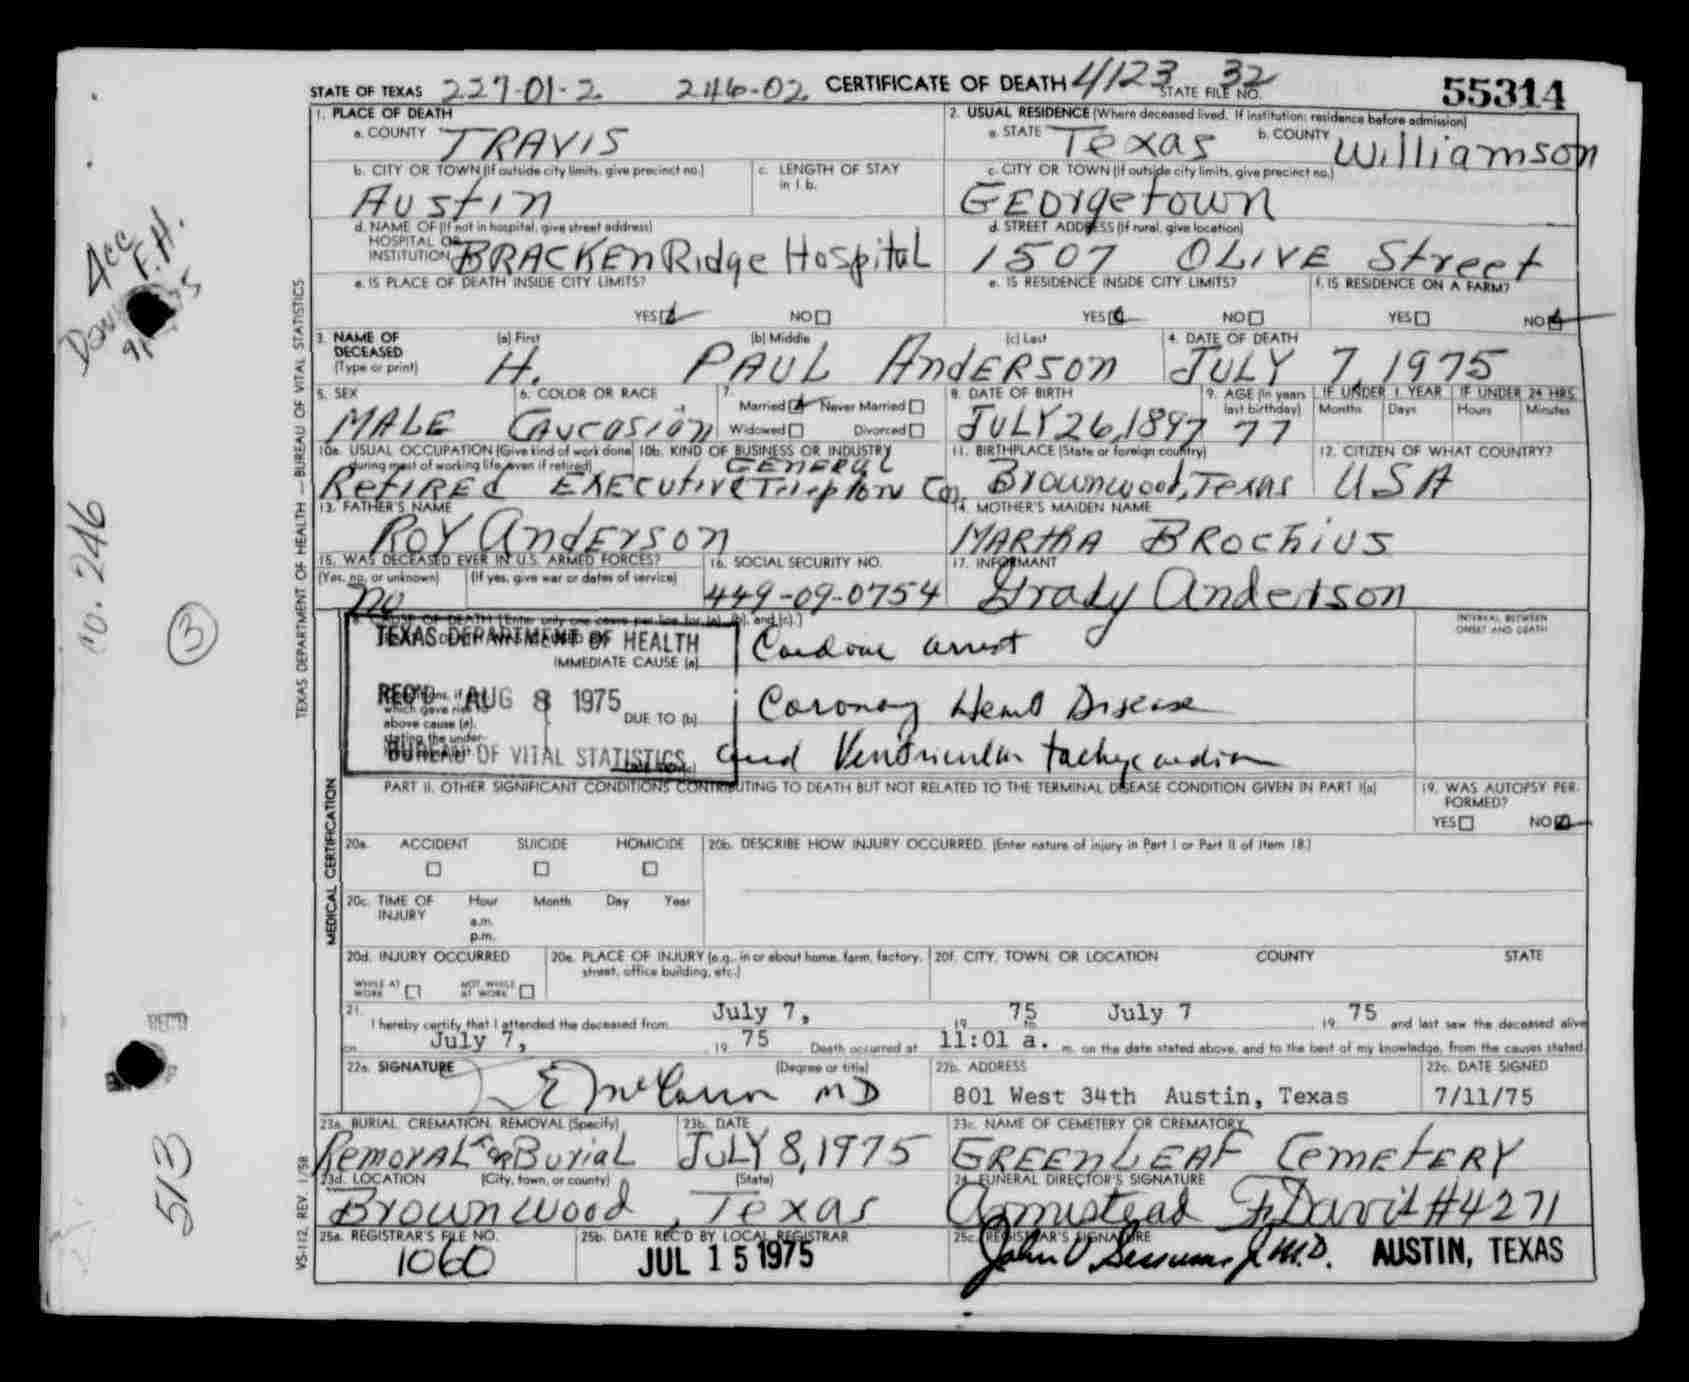 STATE OF TEXAS 227-01-2 246-02 CERTIFICATE OF DEATH 4123 32 STATE FILE NO. 55314
1. PLACE OF DEATH
a. COUNTY TRAVIS
2. USUAL RESIDENCE (Where deceased lived. If institution: residence before admission)
a. STATE Texas b. COUNTY Williamson
b. CITY OR TOWN (If outside city limits, give precinct no.) Austin
c. LENGTH OF STAY in 1 b.
c. CITY OR TOWN (If outside city limits, give precinct no.) GEORgetown
d. NAME OF (If not in hospital, give street address) HOSPITAL OR INSTITUTION BRACKEnRidge Hospital
d. STREET ADDRESS (If rural, give location) 1507 OLIVE Street
e. IS PLACE OF DEATH INSIDE CITY LIMITS? YES NO
e. IS RESIDENCE INSIDE CITY LIMITS? YES NO
f. IS RESIDENCE ON A FARM? YES NO
3. NAME OF DECEASED (Type or print) (a) First H. (b) Middle PAUL (c) Last AnDERSon
4. DATE OF DEATH JULY 7, 1975
5. SEX MALE
6. COLOR OR RACE Caucasian
7. Married Never Married Widowed Divorced
8. DATE OF BIRTH JULY 26, 1897
9. AGE (In years last birthday) 77
IF UNDER 1 YEAR Months Days
IF UNDER 24 HRS. Hours Minutes
10a. USUAL OCCUPATION (Give kind of work done during most of working life, even if retired) RetIRED EXECutivE
10b. KIND OF BUSINESS OR INDUSTRY GENERAL Telephone Co.
11. BIRTHPLACE (State or foreign country) Brownwood, Texas
12. CITIZEN OF WHAT COUNTRY? USA
13. FATHER'S NAME ROY AnDERSon
14. MOTHER'S MAIDEN NAME MARthA BRochius
15. WAS DECEASED EVER IN U.S. ARMED FORCES? (Yes, no, or unknown) (If yes, give war or dates of service) no
16. SOCIAL SECURITY NO. 449-09-0754
17. INFORMANT Grady Anderson
CAUSE OF DEATH (Enter only one cause per line for (a), (b), and (c).)
INTERVAL BETWEEN ONSET AND DEATH
TEXAS DEPARTMENT OF HEALTH
REC'D AUG 8 1975
BUREAU OF VITAL STATISTICS
IMMEDIATE CAUSE (a) Cardiac arrest
which gave rise to above cause (a), stating the under-
DUE TO (b) Coronary Heart Disease
and Ventricular tachycardia
PART II. OTHER SIGNIFICANT CONDITIONS CONTRIBUTING TO DEATH BUT NOT RELATED TO THE TERMINAL DISEASE CONDITION GIVEN IN PART I(a)
19. WAS AUTOPSY PERFORMED? YES NO
20a. ACCIDENT SUICIDE HOMICIDE
20b. DESCRIBE HOW INJURY OCCURRED. (Enter nature of injury in Part I or Part II of Item 18.)
20c. TIME OF INJURY Hour Month Day Year
a.m.
p.m.
20d. INJURY OCCURRED
WHILE AT WORK NOT WHILE AT WORK
20e. PLACE OF INJURY (e.g., in or about home, farm, factory, street, office building, etc.)
20f. CITY, TOWN, OR LOCATION COUNTY STATE
21. I hereby certify that I attended the deceased from July 7, 19 75 to July 7 19 75 and last saw the deceased alive
on July 7, 19 75 Death occurred at 11:01 a. m. on the date stated above, and to the best of my knowledge, from the causes stated.
22a. SIGNATURE (Degree or title) MD
22b. ADDRESS 801 West 34th Austin, Texas
22c. DATE SIGNED 7/11/75
23a. BURIAL, CREMATION, REMOVAL (Specify) Removal Burial
23b. DATE JULY 8, 1975
23c. NAME OF CEMETERY OR CREMATORY GREENLEAF CEMETERY
23d. LOCATION (City, town, or county) (State) Brownwood, Texas
24. FUNERAL DIRECTOR'S SIGNATURE Armistead F. Davis #4271
25a. REGISTRAR'S FILE NO. 1060
25b. DATE REC'D BY LOCAL REGISTRAR JUL 15 1975
25c. REGISTRAR'S SIGNATURE M.D. AUSTIN, TEXAS
TEXAS DEPARTMENT OF HEALTH — BUREAU OF VITAL STATISTICS
MEDICAL CERTIFICATION
VS-112, REV. 1/58
Acc F.H.
no. 246
3
513